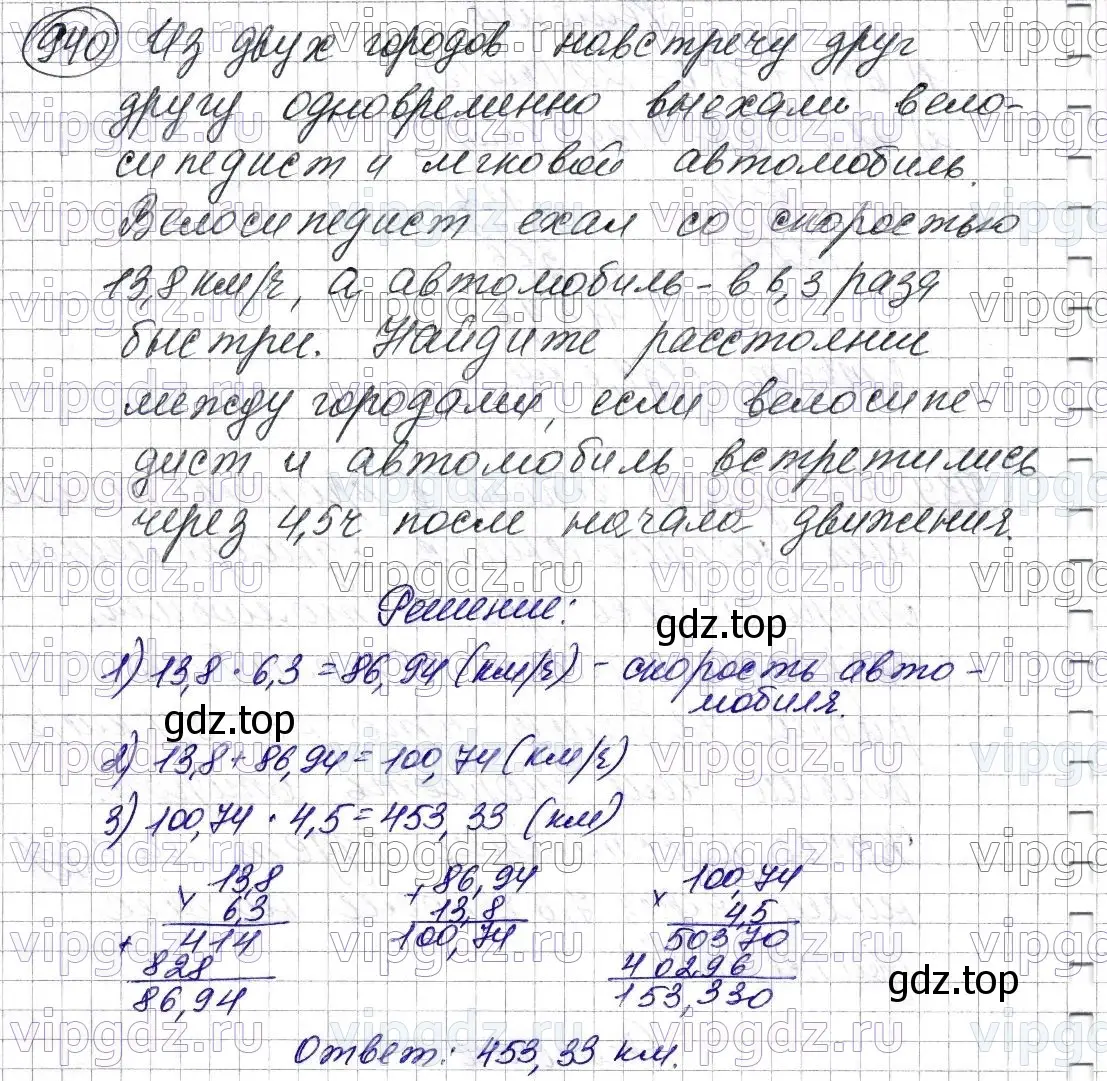 940 Из двух городов навстречу друг
другу одновременно выехали вело-
сипедист и легковой автомобиль.
Велосипедист ехал со скоростью
13,8 км/ч, а автомобиль - в 6,3 раза
быстрее. Найдите расстояние
между городами, если велосипе-
дист и автомобиль встретились
через 4,5ч после начала движения.
Решение:
gdz.top
1) 13,8 · 6,3 = 86,94 (км/ч) - скорость авто -
мобиля.
gdz.top
2) 13,8 + 86,94 = 100,74 (км/ч)
3) 100,74 · 4,5 = 453,33 (км)
13,8 86,94 100,74
× 6,3 + 13,8 × 4,5
+ 414 100,74 50370
828 40296
86,94 153,330
gdz.top
Ответ: 453,33 км.
vipgdz.ru